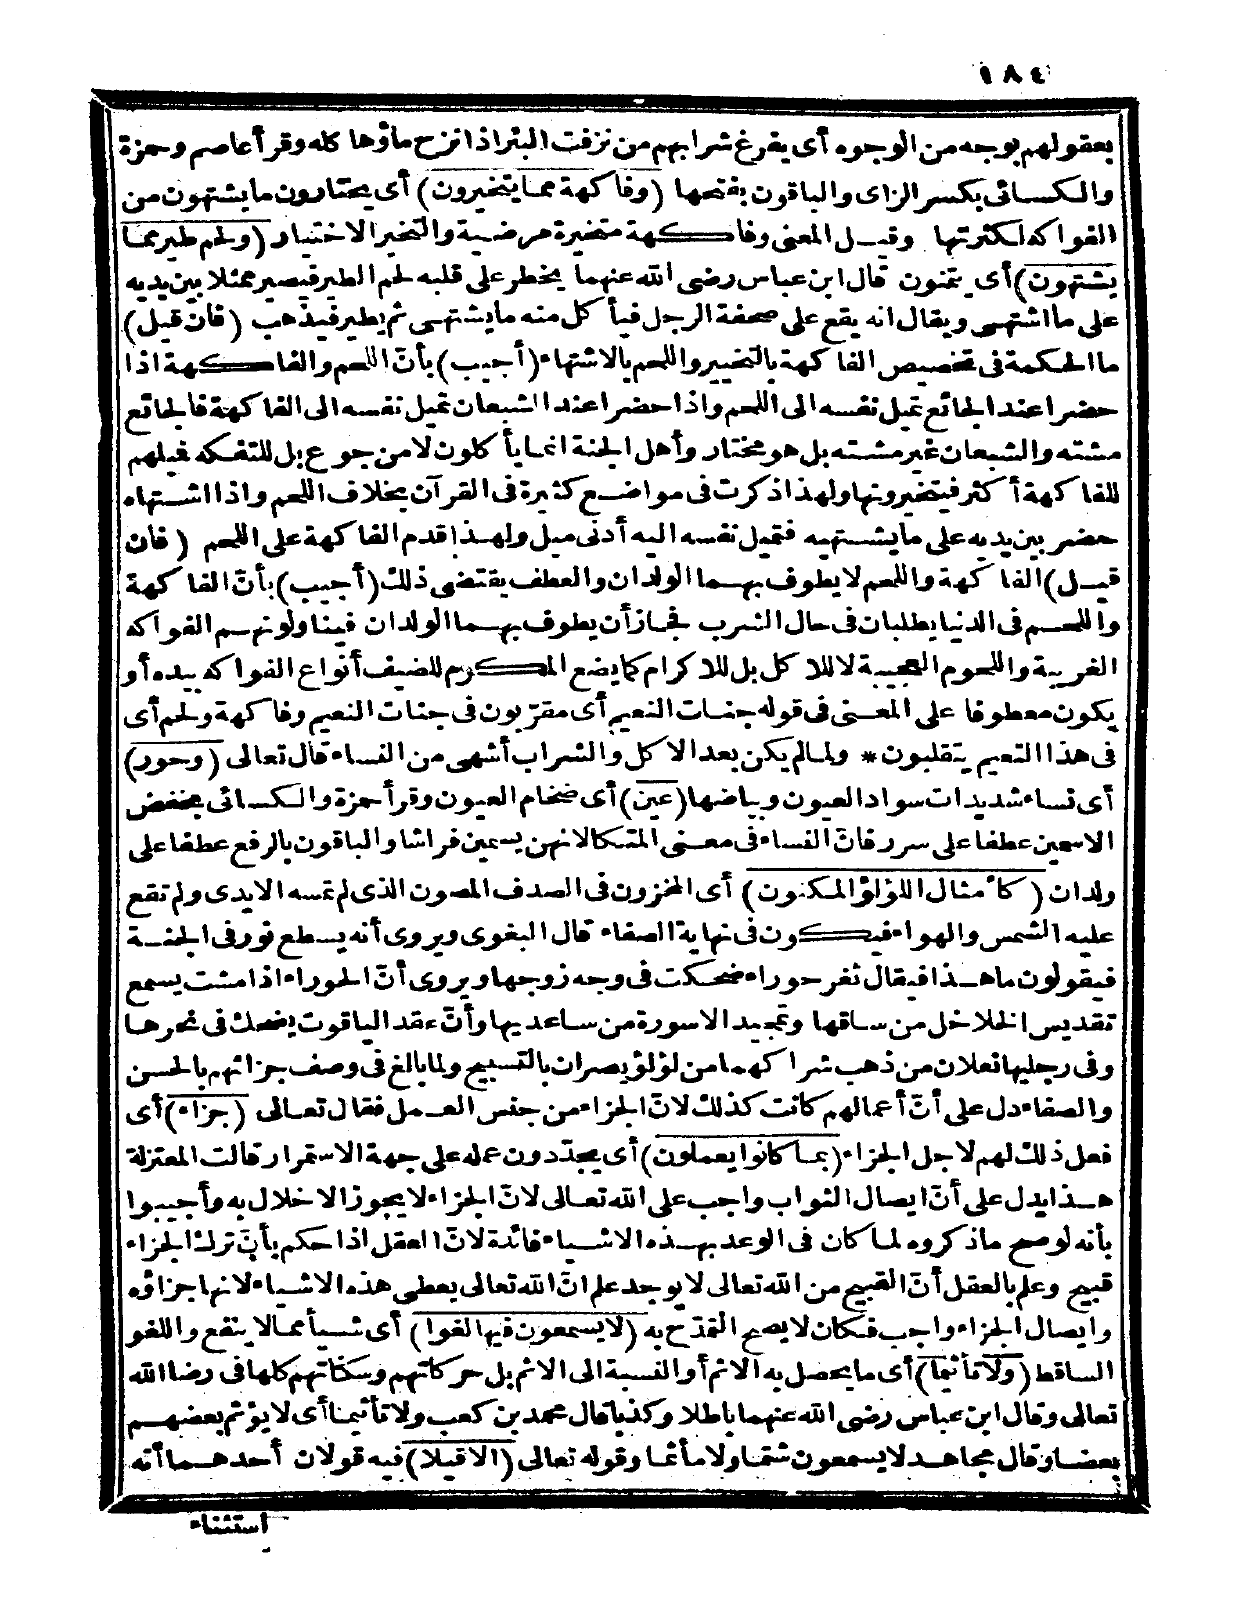 ١٨٤
بعقولهم بوجه من الوجوه أى يفرغ شرابهم من نزفت البئر اذا نزح ماؤها كله وقرأ عاصم وحمزة
والكسائى بكسر الزاى والباقون بفتحها (وفاكهة مما يتخيرون) أى يختارون ما يشتهون من
الفواكه لكثرتها وقيل المعنى وفاكهة متخيرة مرضية والتخير الاختيار (ولحم طير مما
يشتهون) أى يتمنون قال ابن عباس رضى الله عنهما يخطر على قلبه لحم الطير فيصير ممثلا بين يديه
على ما اشتهى ويقال انه يقع على صحفة الرجل فيأكل منه ما يشتهى ثم يطير فيذهب (فان قيل)
ما الحكمة فى تخصيص الفاكهة بالتخيير واللحم بالاشتهاء (أجيب) بأنّ اللحم والفاكهة اذا
حضرا عند الجائع تميل نفسه الى اللحم واذا حضرا عند الشبعان تميل نفسه الى الفاكهة فالجائع
مشته والشبعان غير مشته بل هو مختار وأهل الجنة انما يأكلون لا من جوع بل للتفكه فميلهم
للفاكهة أكثر فيتخيرونها ولهذا ذكرت فى مواضع كثيرة فى القرآن بخلاف اللحم واذا اشتهاه
حضر بين يديه على ما يشتهيه فتميل نفسه اليه أدنى ميل ولهذا قدم الفاكهة على اللحم (فان
قيل) الفاكهة واللحم لا يطوف بهما الولدان والعطف يقتضى ذلك (أجيب) بأنّ الفاكهة
واللحم فى الدنيا يطلبان فى حال الشرب فجاز أن يطوف بهما الولدان فيناولونهم الفواكه
الغريبة واللحوم العجيبة لا للاكل بل للاكرام كما يضع المكرم للضيف أنواع الفواكه بيده أو
يكون معطوفا على المعنى فى قوله جنات النعيم أى مقرّبون فى جنات النعيم وفاكهة ولحم أى
فى هذا النعيم يتقلبون * ولما لم يكن بعد الاكل والشراب أشهى من النساء قال تعالى (وحور)
أى نساء شديدات سواد العيون وبياضها (عين) أى ضخام العيون وقرأ حمزة والكسائى بخفض
الاسمين عطفا على سرر فانّ النساء فى معنى المتكا لانهن يسمين فراشا والباقون بالرفع عطفا على
ولدان (كأمثال اللؤلؤ المكنون) أى المخزون فى الصدف المصون الذى لم تمسه الايدى ولم تقع
عليه الشمس والهواء فيكون فى نهاية الصفاء قال البغوى ويروى أنه يسطع نور فى الجنة
فيقولون ما هذا فيقال ثغر حوراء ضحكت فى وجه زوجها ويروى أنّ الحوراء اذا مشت يسمع
تقديس الخلاخل من ساقها وتمجيد الاسورة من ساعديها وأنّ عقد الياقوت يضحك فى نحرها
وفى رجليها نعلان من ذهب شراكهما من لؤلؤ يصران بالتسبيح ولما بالغ فى وصف جزائهم بالحسن
والصفاء دل على أنّ أعمالهم كانت كذلك لانّ الجزاء من جنس العمل فقال تعالى (جزاء) أى
فعل ذلك لهم لاجل الجزاء (بما كانوا يعملون) أى يجدّدون عمله على جهة الاستمرار قالت المعتزلة
هذا يدل على أنّ ايصال الثواب واجب على الله تعالى لانّ الجزاء لا يجوز الاخلال به وأجيبوا
بأنه لو صح ما ذكروه لما كان فى الوعد بهذه الاشياء فائدة لانّ العقل اذا حكم بأنّ ترك الجزاء
قبيح وعلم بالعقل أنّ القبيح من الله تعالى لا يوجد علم انّ الله تعالى يعطى هذه الاشياء لانها جزاؤه
وايصال الجزاء واجب فكان لا يصح التمدّح به (لا يسمعون فيها لغوا) أى شيأ مما لا ينفع واللغو
الساقط (ولا تأثيما) أى ما يحصل به الاثم أو النسبة الى الاثم بل حركاتهم وسكناتهم كلها فى رضا الله
تعالى وقال ابن عباس رضى الله عنهما باطلا وكذبا قال محمد بن كعب ولا تأثيما أى لا يؤثم بعضهم
بعضا وقال مجاهد لا يسمعون شتما ولا مأثما وقوله تعالى (الا قيلا) فيه قولان أحدهما أنه
استثناء